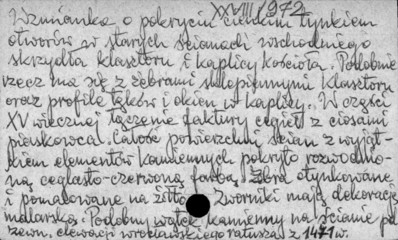 XXVIII/1972
Wzmianka o pokryciu cienkim tynkiem
otworów w starych ścianach wschodniego
skrzydła klasztoru i kaplicy kościoła. Podobnie
rzecz ma się z żebrami sklepiennymi klasztoru
oraz profile łęków i okien w kaplicy. W części
XV wiecznej łączenie faktury cegieł z ciosami
piaskowca. Całość powierzchni ścian z wyjąt-
kiem elementów kamiennych pokryto rozwodnio-
ną ceglasto-czerwoną farbą. Żebra otynkowane
i pomalowane na żółto. Zworniki mają dekorację
malarską. Podobny wątek kamienny na ścianie
zewn. elewacji wrocławskiego ratusza z 1471 w.